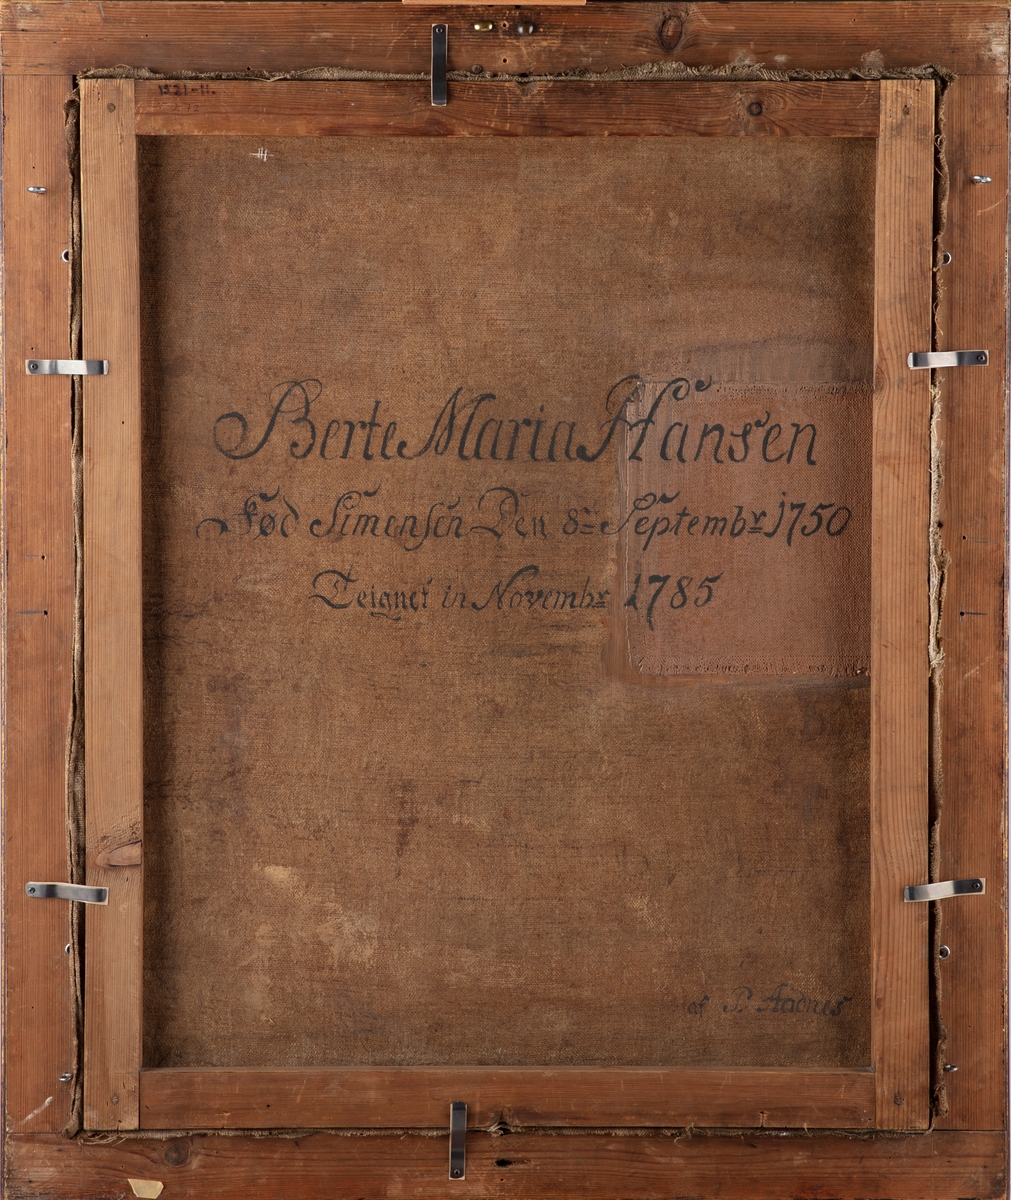 1921-11.
Berte Maria Hansen
Fød Simensen Den 8de Septembr 1750
Teignet in Novembr 1785
af P Aadnes